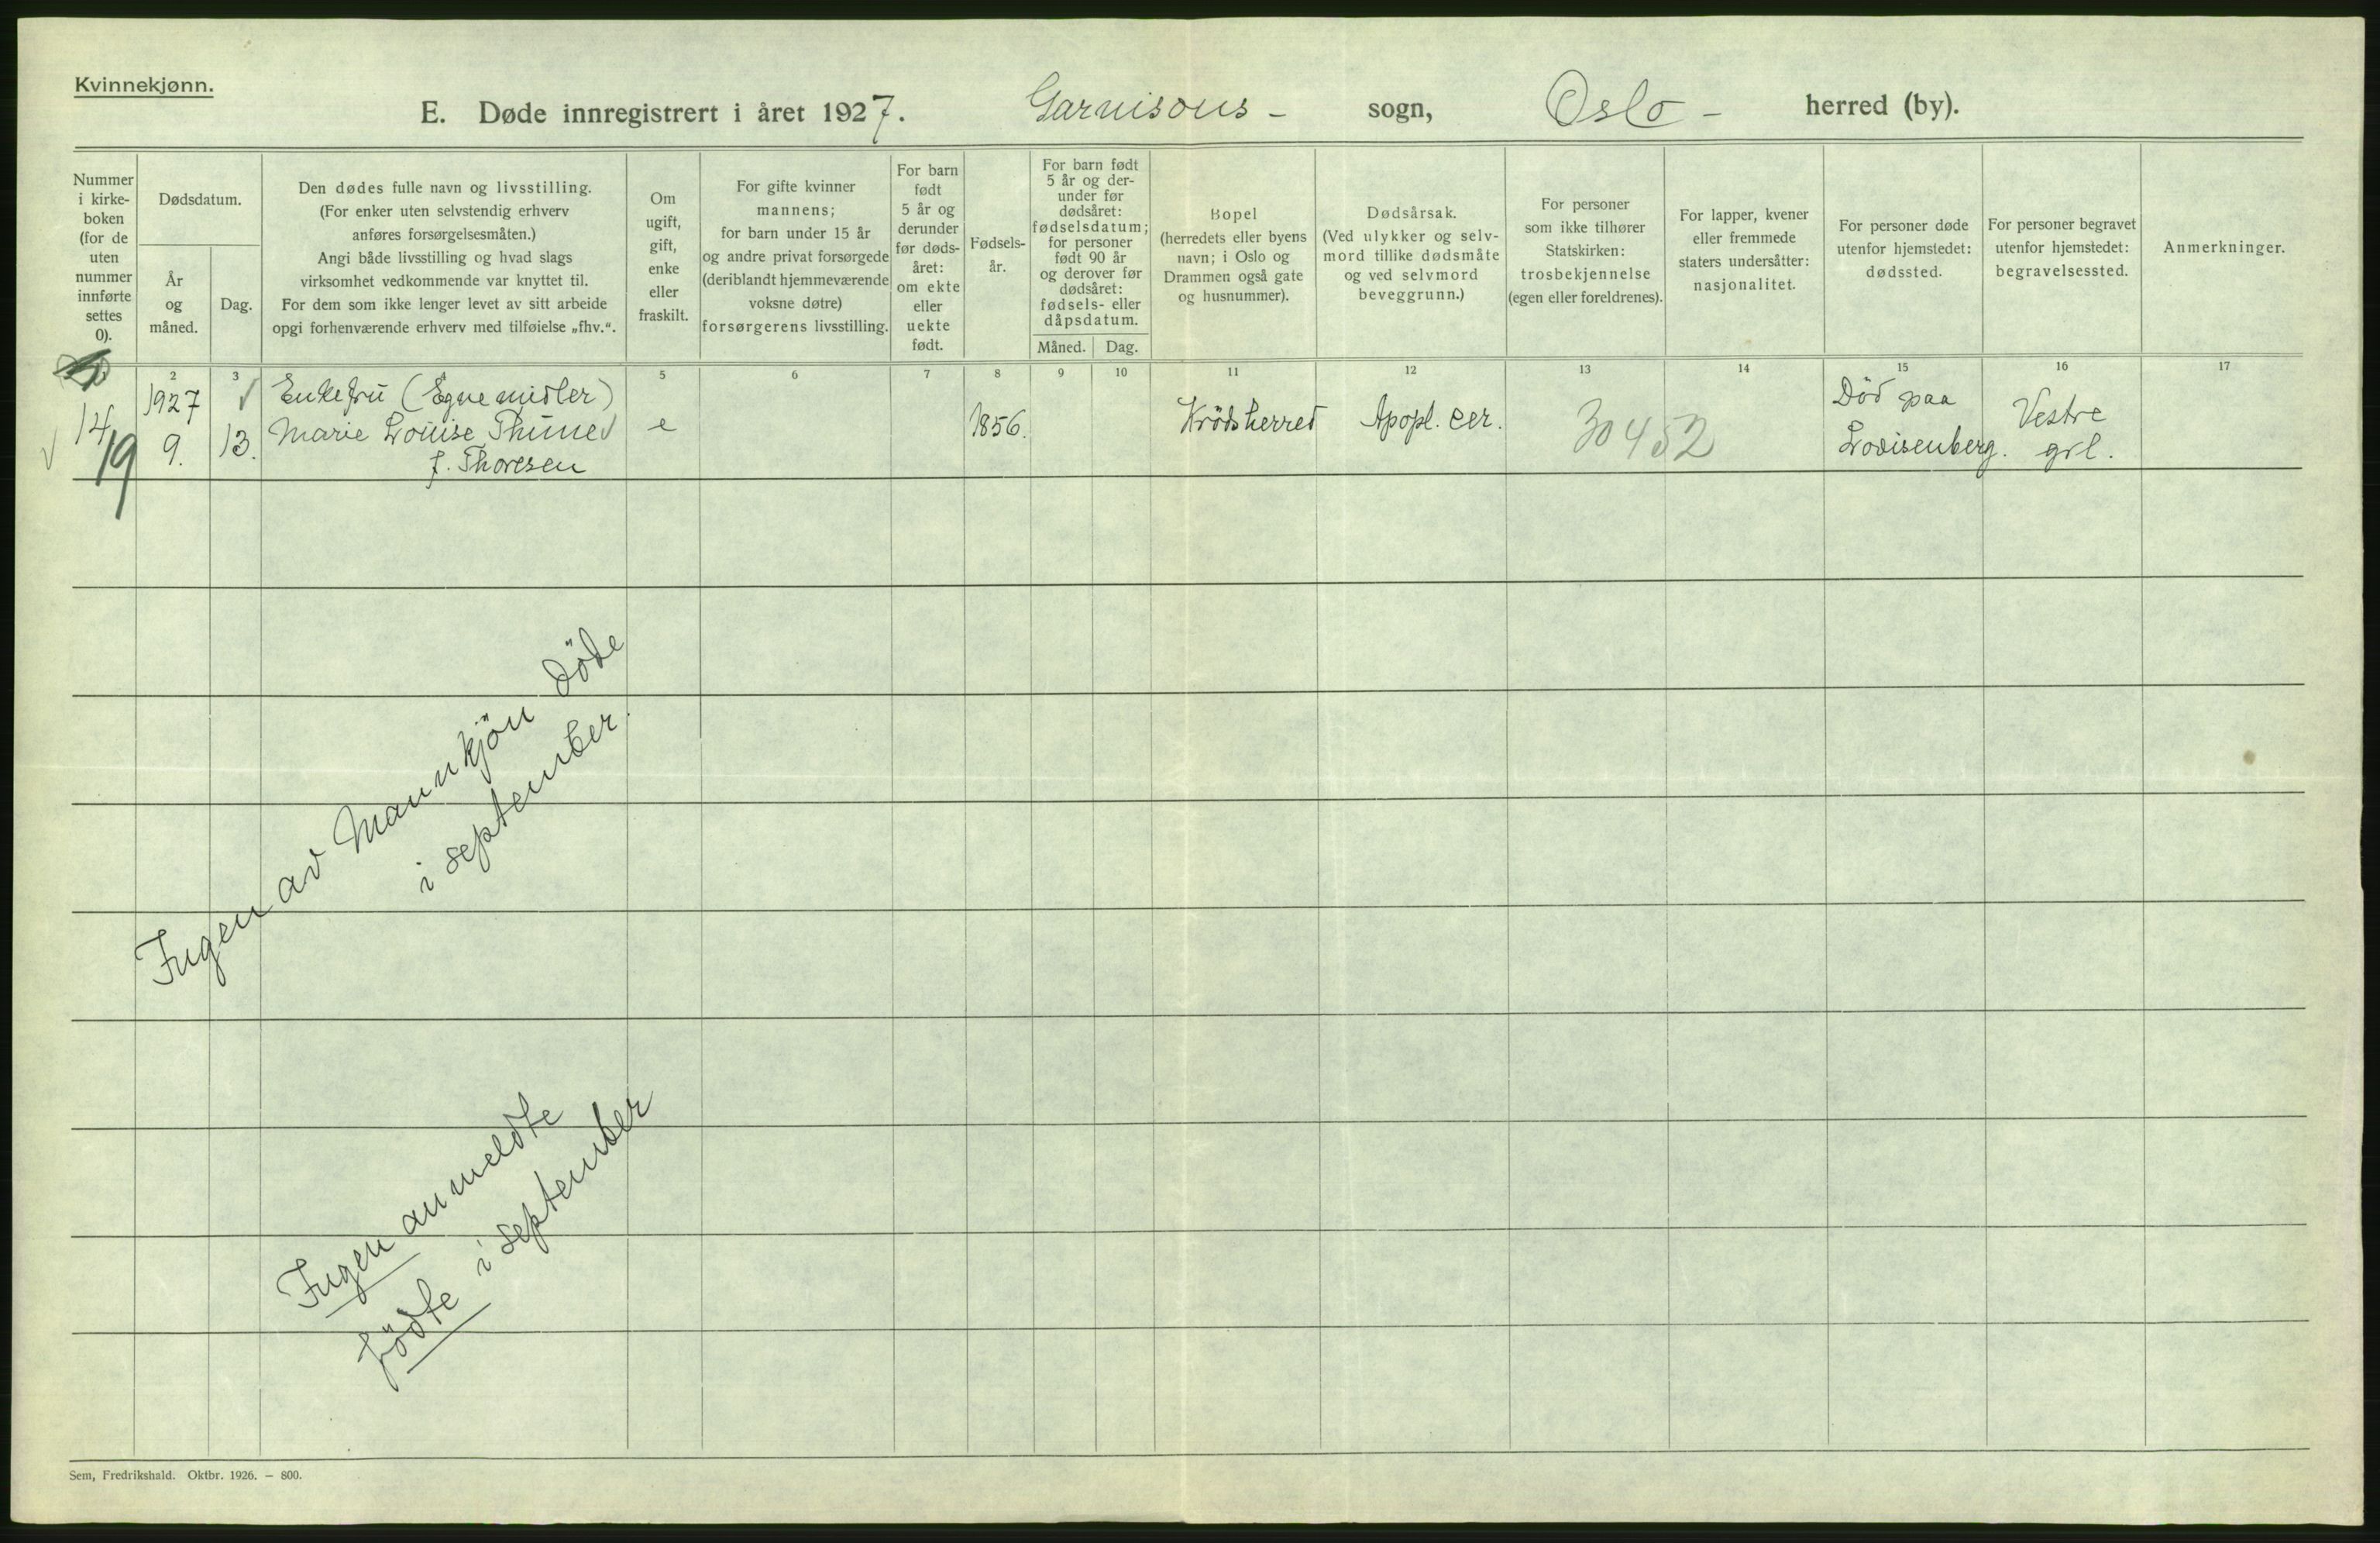 Kvinnekjønn.
E. Døde innregistrert i året 1927. Garnisons - sogn, Oslo - herred (by).
Nummer
i kirke-
boken
(for de
uten
nummer
innførte
settes
0).
Dødsdatum.
År
og
måned.
Dag.
Den dødes fulle navn og livsstilling.
(For enker uten selvstendig erhverv
anføres forsørgelsesmåten.)
Angi både livsstilling og hvad slags
virksomhet vedkommende var knyttet til.
For dem som ikke lenger levet av sitt arbeide
opgi forhenværende erhverv med tilføielse „fhv.“.
Om
ugift,
gift,
enke
eller
fraskilt.
For gifte kvinner
mannens;
for barn under 15 år
og andre privat forsørgede
(deriblandt hjemmeværende
voksne døtre)
forsørgerens livsstilling.
For barn
født
5 år og
derunder
før døds-
året:
om ekte
eller
uekte
født.
Fødsels-
år.
For barn født
5 år og der-
under før
dødsåret:
fødselsdatum;
for personer
født 90 år
og derover før
dødsåret:
fødsels- eller
dåpsdatum.
Måned. Dag.
Bopel
(herredets eller byens
navn; i Oslo og
Drammen også gate
og husnummer).
Dødsårsak.
(Ved ulykker og selv-
mord tillike dødsmåte
og ved selvmord
beveggrunn.)
For personer
som ikke tilhører
Statskirken:
trosbekjennelse
(egen eller foreldrenes).
For lapper, kvener
eller fremmede
staters undersåtter:
nasjonalitet.
For personer døde
utenfor hjemstedet:
dødssted.
For personer begravet
utenfor hjemstedet:
begravelsessted.
Anmerkninger.
2 3 5 6 7 8 9 10 11 12 13 14 15 16 17
14
19
1927
9.
13.
Enkefru (Egne midler)
Marie Louise Thune
f. Thoresen
e
1856.
Krödsherred
Apopl. cer.
30452
Död paa
Lovisenberg.
Vestre
grl.
Ingen av Mannkjön döde
i september.
Ingen anmeldte
födte i september
Sem, Fredrikshald. Oktbr. 1926. — 800.